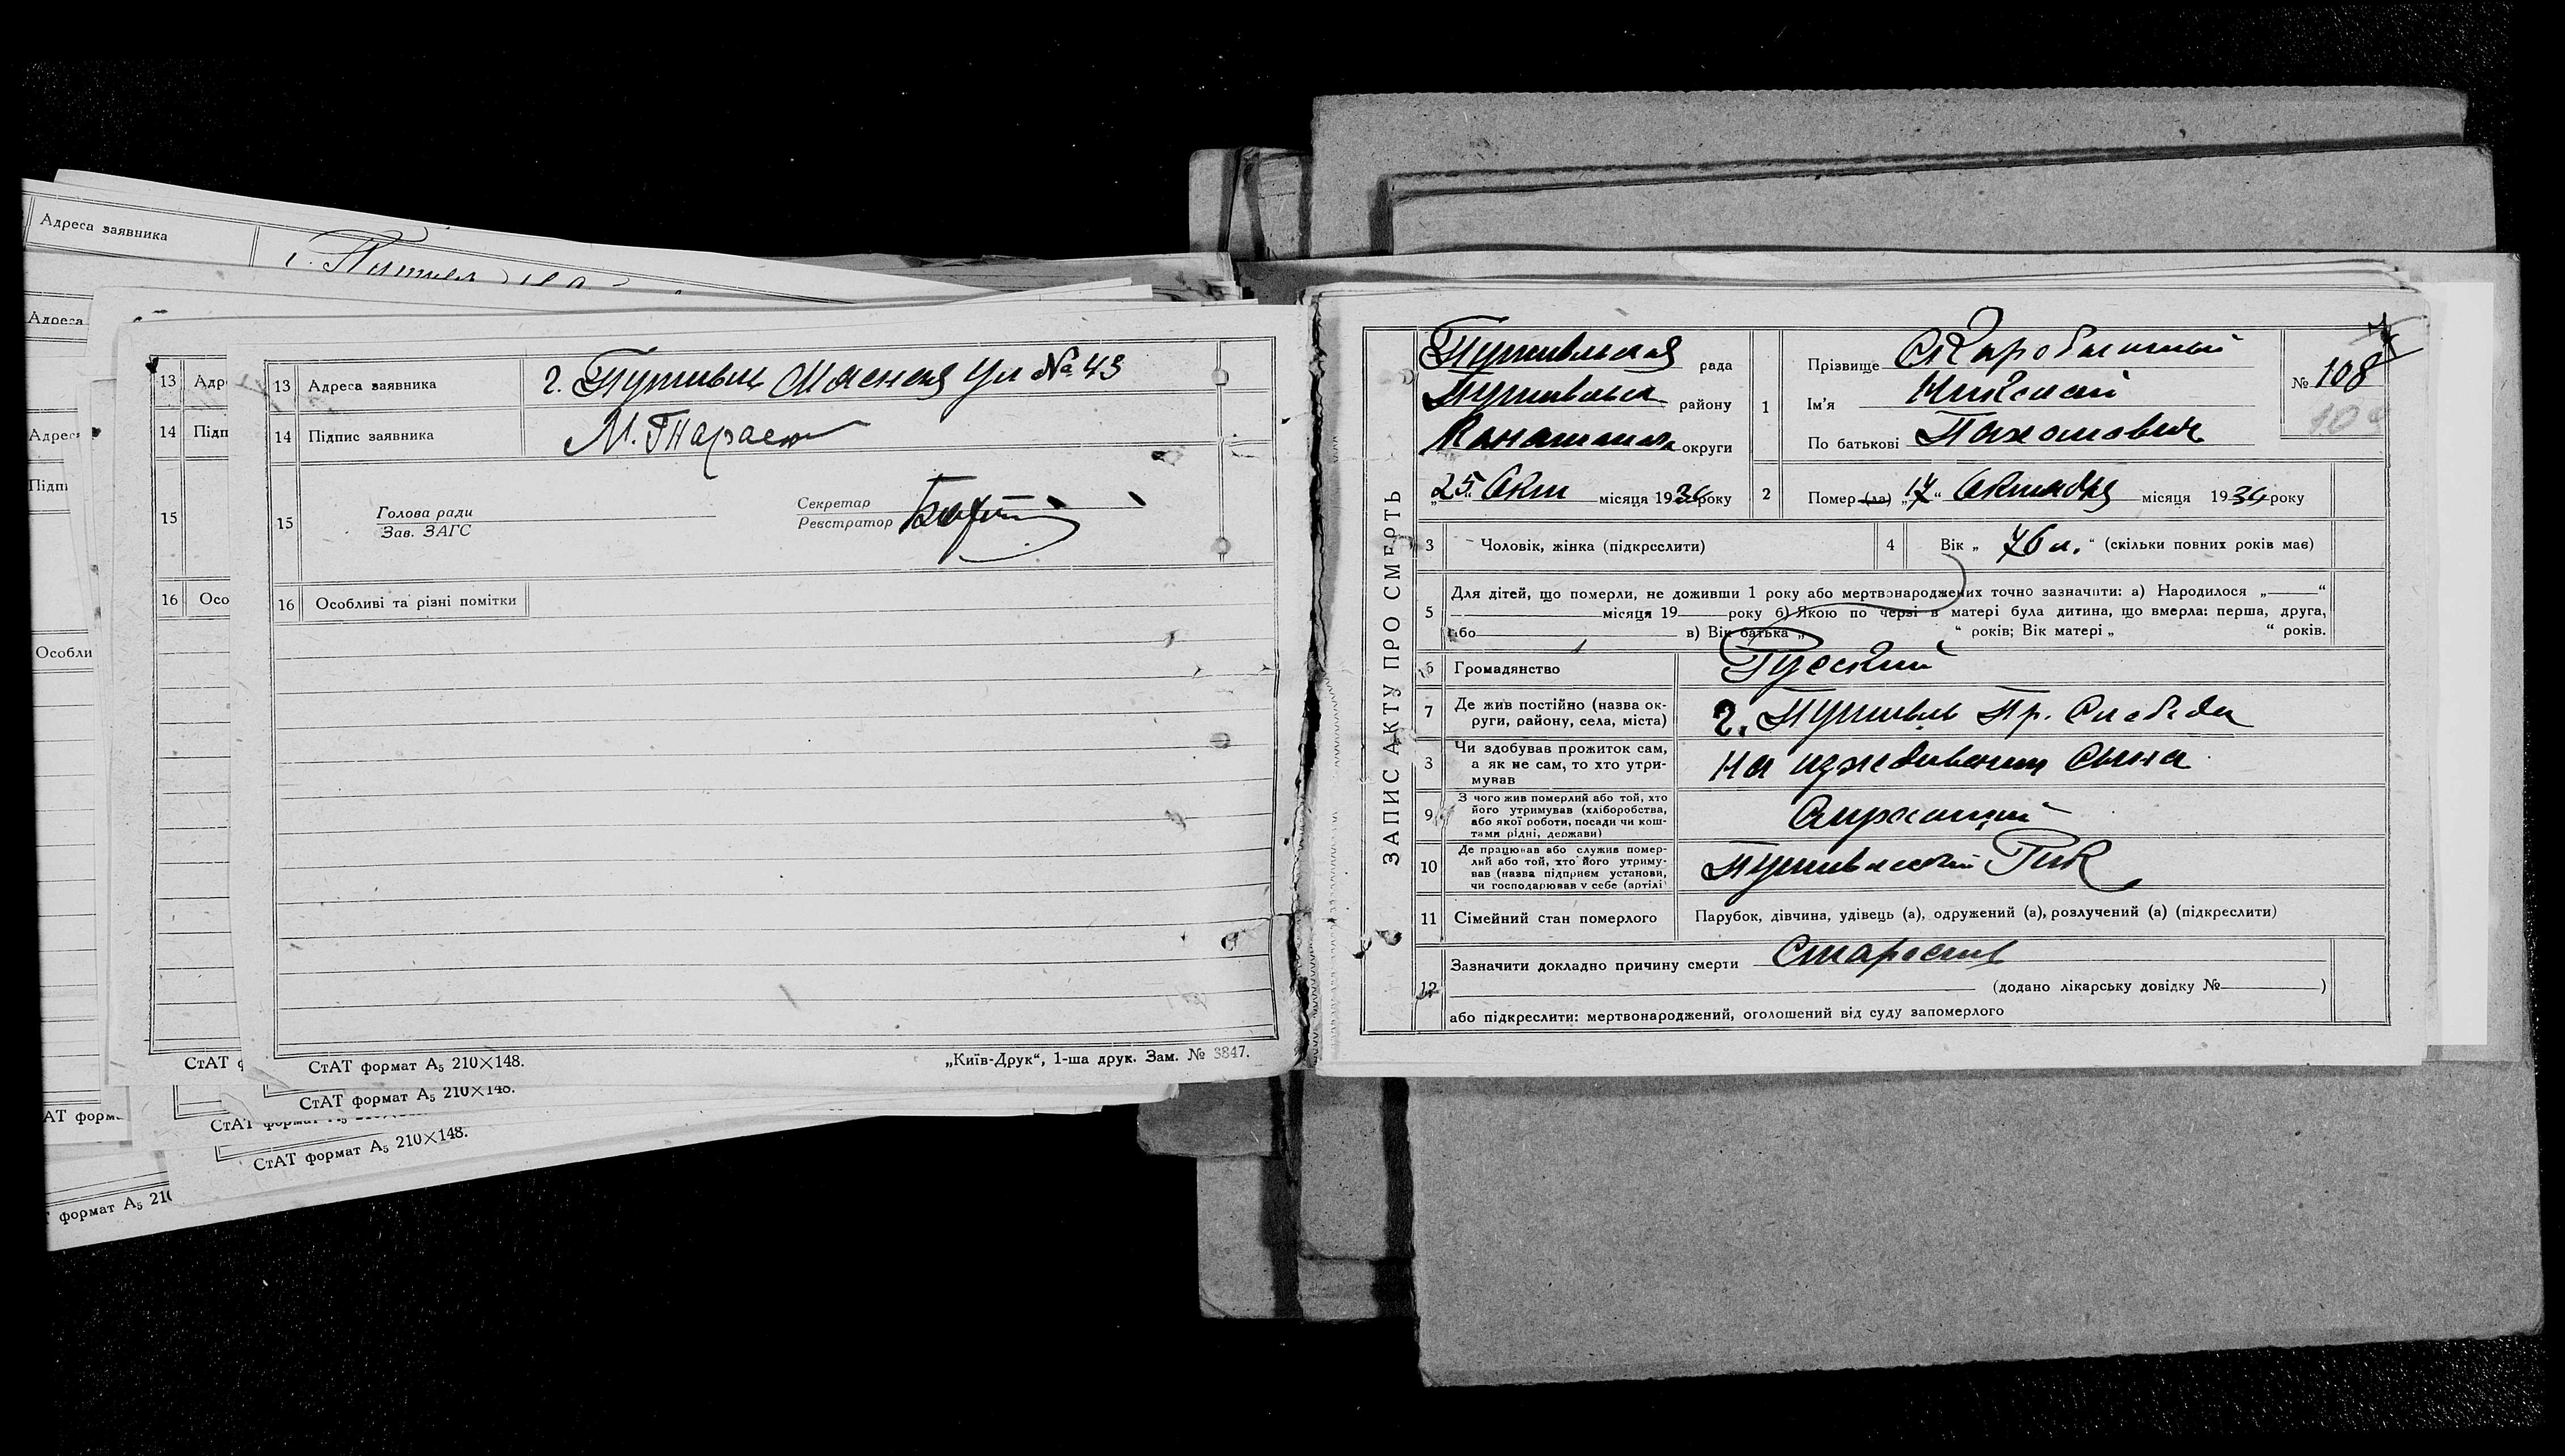 Адреса заявника
Адреса
Адреса
Підпи
Особли
13 Адр
14 Підп
15
16 Осо
13 Адреса заявника г. Путивль Ул № 43
14 Підпис заявника М. Тарасен
15 Голова ради
Зав. ЗАГС
Секретар
Реєстратор
16 Особливі та різні помітки
СтАТ формат А5 210×148.
„Київ-Друк“, 1-ша друк. Зам. № 3847.
СтАТ ф
СтАТ формат А5 210×148.
СтАТ формат А5
СтАТ формат А5 210×148.
АТ форма
формат А5 210
ЗАПИС АКТУ ПРО СМЕРТЬ
Путивльская рада
Путивльск району
округи
„25“ Окт місяця 1934 року
1 Прізвище
Ім'я Николай
По батькові Пахомович
№ 108
2 Помер (ла) „17“ Октября місяця 1934 року
3 Чоловік, жінка (підкреслити)
4 Вік „ 76 л. “ (скільки повних років має)
5 Для дітей, що померли, не доживши 1 року або мертвонароджених точно зазначити: а) Народилося „ “
місяця 19 року б) Якою по черзі в матері була дитина, що вмерла: перша, друга,
або в) Вік батька „ “ років; Вік матері „ “ років.
6 Громадянство Руский
7 Де жив постійно (назва округи, району, села, міста) г. Путивль Пр. Слобода
Чи здобував прожиток сам, а як не сам, то хто утримував На иждивении сына
9 З чого жив померлий або той, хто його утримував (хліборобства, або якої роботи, посади чи коштами рідні, держави) Служащий
10 Де працював або служив померлий або той, хто його утримував (назва підприєм установи, чи господарював у себе (артілі) Путивльский Рик
11 Сімейний стан померлого Парубок, дівчина, удівець (а), одружений (а), розлучений (а) (підкреслити)
12 Зазначити докладно причину смерти Старость
(додано лікарську довідку № )
або підкреслити: мертвонароджений, оголошений від суду запомерлого